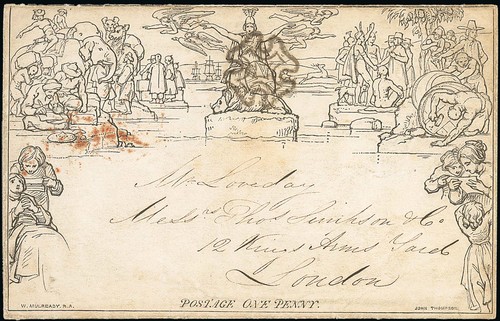 Mr Loveday
Messrs Thos Simpson & Co
12 Kings Arms Yard
London
POSTAGE ONE PENNY.
W. MULREADY, R.A.
JOHN THOMPSON.